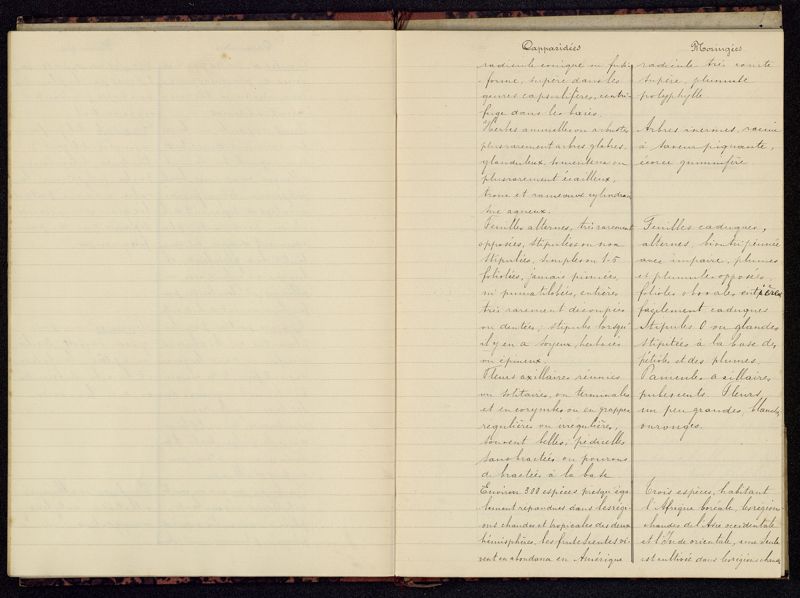 Capparidées
radicule conique ou fusi-
forme, supère dans les
genres capsulifères, centri-
fuge dans les baies.
Herbes annuelles ou arbustes
plus rarement arbres glabres,
glanduleux, tomenteux ou
plus rarement écailleux,
tronc et rameaux cylindra
aqueux.
Feuilles alternes, très rarement
opposées, stipulées ou non
stipulées, simples ou 1-5
foliolées, jamais pinnées
ni pinnatilobées, entières
très rarement découpées
ou dentées; stipule lorsqu'
il y en a soyeux, herbacés
ou épineux.
Fleurs axillaires réunies
ou solitaires, ou terminales
et en corymbe ou en grappe
regulières ou irrégulières,
souvent belles, pédicelles
sans bractées ou pourvus
de bractées à la base
Environ 300 espèces presqu'éga-
lement repandues dans les regi-
ons chaudes et tropicales des deux
hémisphères, les frutescentes vi-
vent en abondance en Amérique
Moringées
radicule très courte
supère, plumule
polyphylle.
Arbres inermes, racine
à saveur piquante,
écorce gummifère.
Feuilles caduques,
alternes, bi ou tri pennée
avec impaire, plumes
et plumule opposés,
folioles obovales entières
facilement caduques
Stipules 0 ou glandes
stipitées à la base des
pétioles et des plumes.
Panicules axillaires
pubescents. Fleurs,
un peu grandes, blanches
ou rouges.
Trois espèces, habitant
l'Afrique boréale, les region
chaudes de l'Asie occidentale
et l'Inde orientale, une seule
est cultivée dans les regions chaudes